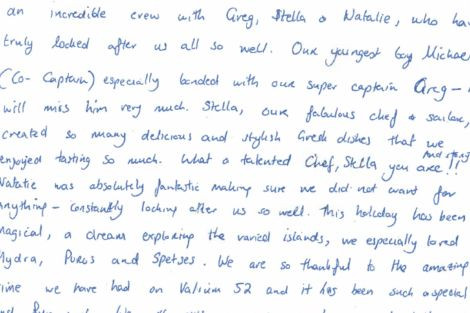 an incredible crew with Greg, Stella & Natalie, who have
truly looked after us all so well. Our youngest boy Michael
(Co-Captain) especially bonded with our super captain Greg –
will miss him very much. Stella, our fabulous chef & sailor,
created so many delicious and stylish Greek dishes that we
enjoyed tasting so much. What a talented Chef, Stella you are!!
Natalie was absolutely fantastic making sure we did not want for
anything – constantly looking after us so well. This holiday has been
magical, a dream exploring the varied islands, we especially loved
Hydra, Poros and Spetses. We are so thankful to the amazing
time we have had on Valium 52 and it has been such a special